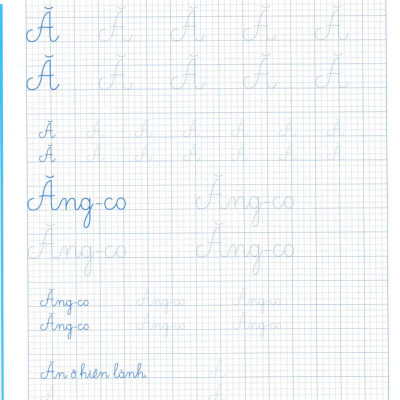 Ă Ă Ă Ă Ă
Ă Ă Ă Ă Ă
Ă Ă Ă Ă Ă Ă Ă
Ă Ă Ă Ă Ă Ă Ă
Ăng-co Ăng-co
Ăng-co Ăng-co
Ăng-co Ăng-co Ăng-co
Ăng-co Ăng-co Ăng-co
Ăn ở hiền lành.